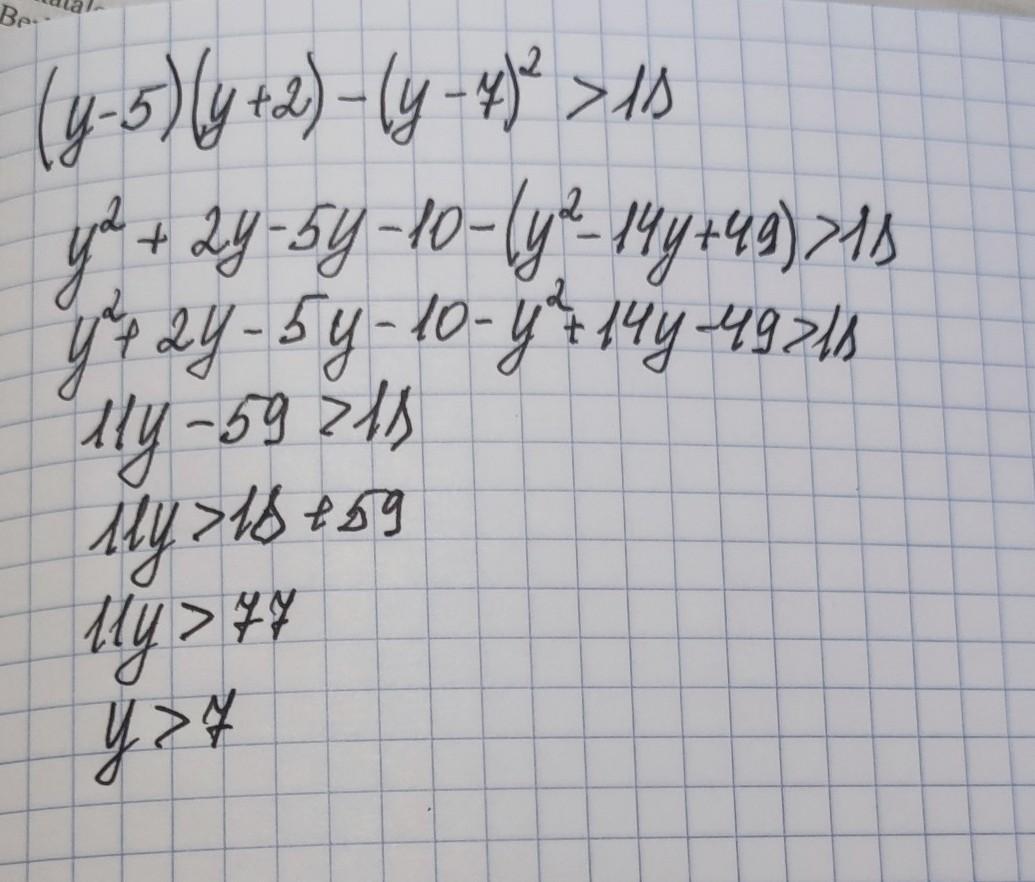 (y-5)(y+2)-(y-7)²>18
y²+2y-5y-10-(y²-14y+49)>18
y²+2y-5y-10-y²+14y-49>18
11y-59>18
11y>18+59
11y>77
y>7